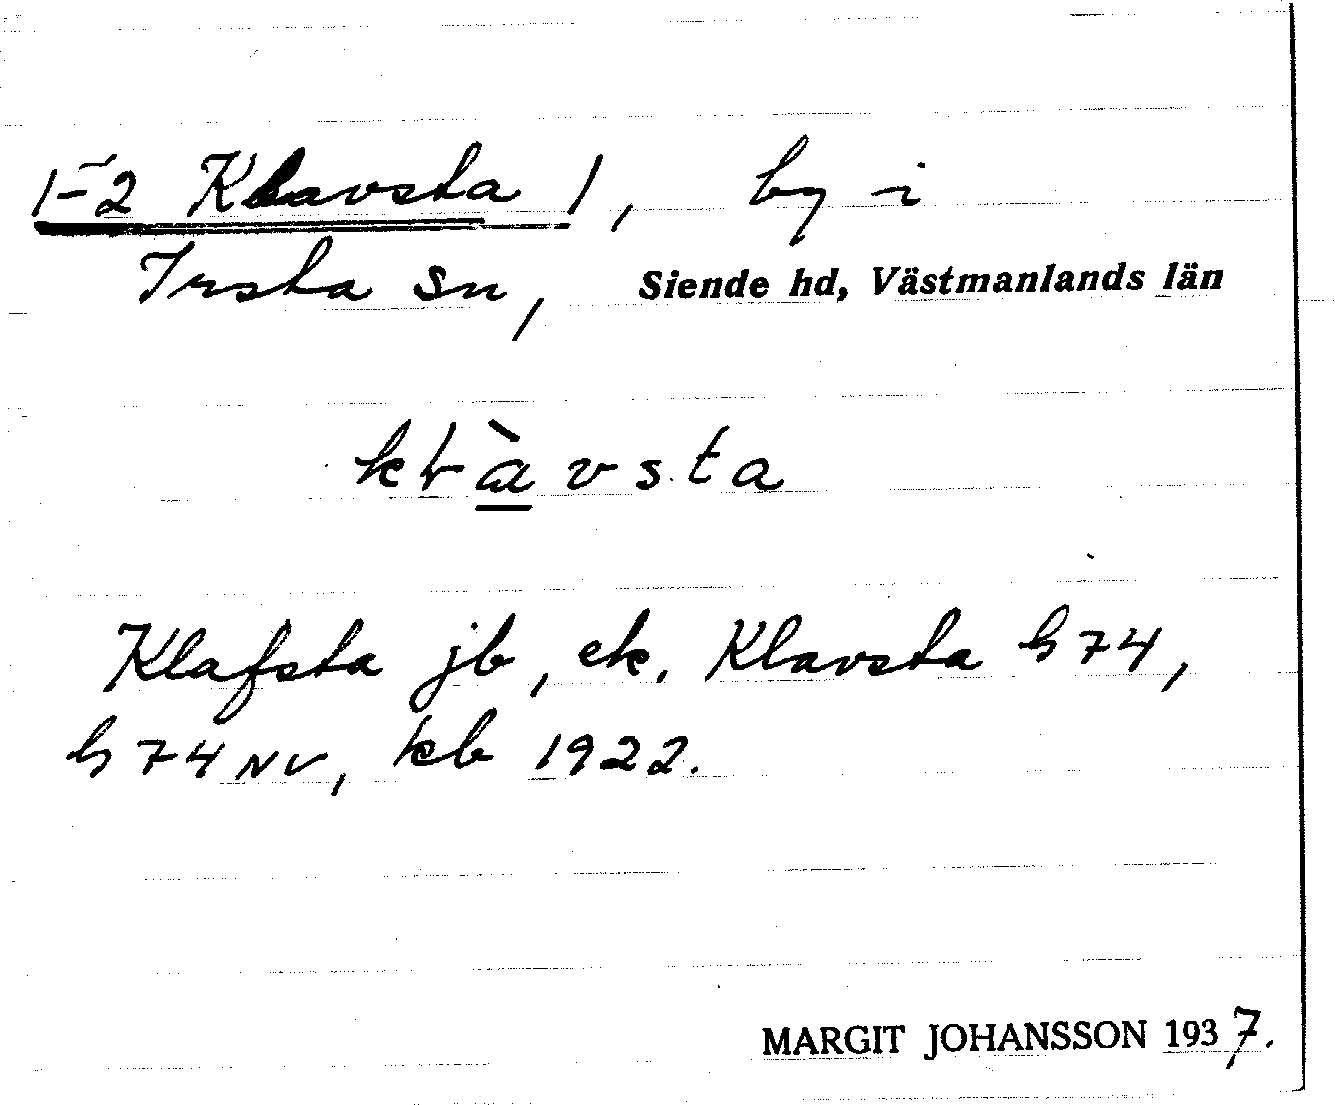 1-2 Klavsta 1, by i
Irsta sn, Siende hd, Västmanlands län
kɫàvsta
Klafsta jb, ek. Klavsta h 74,
h 74 NV, kb 1922.
MARGIT JOHANSSON 1937.